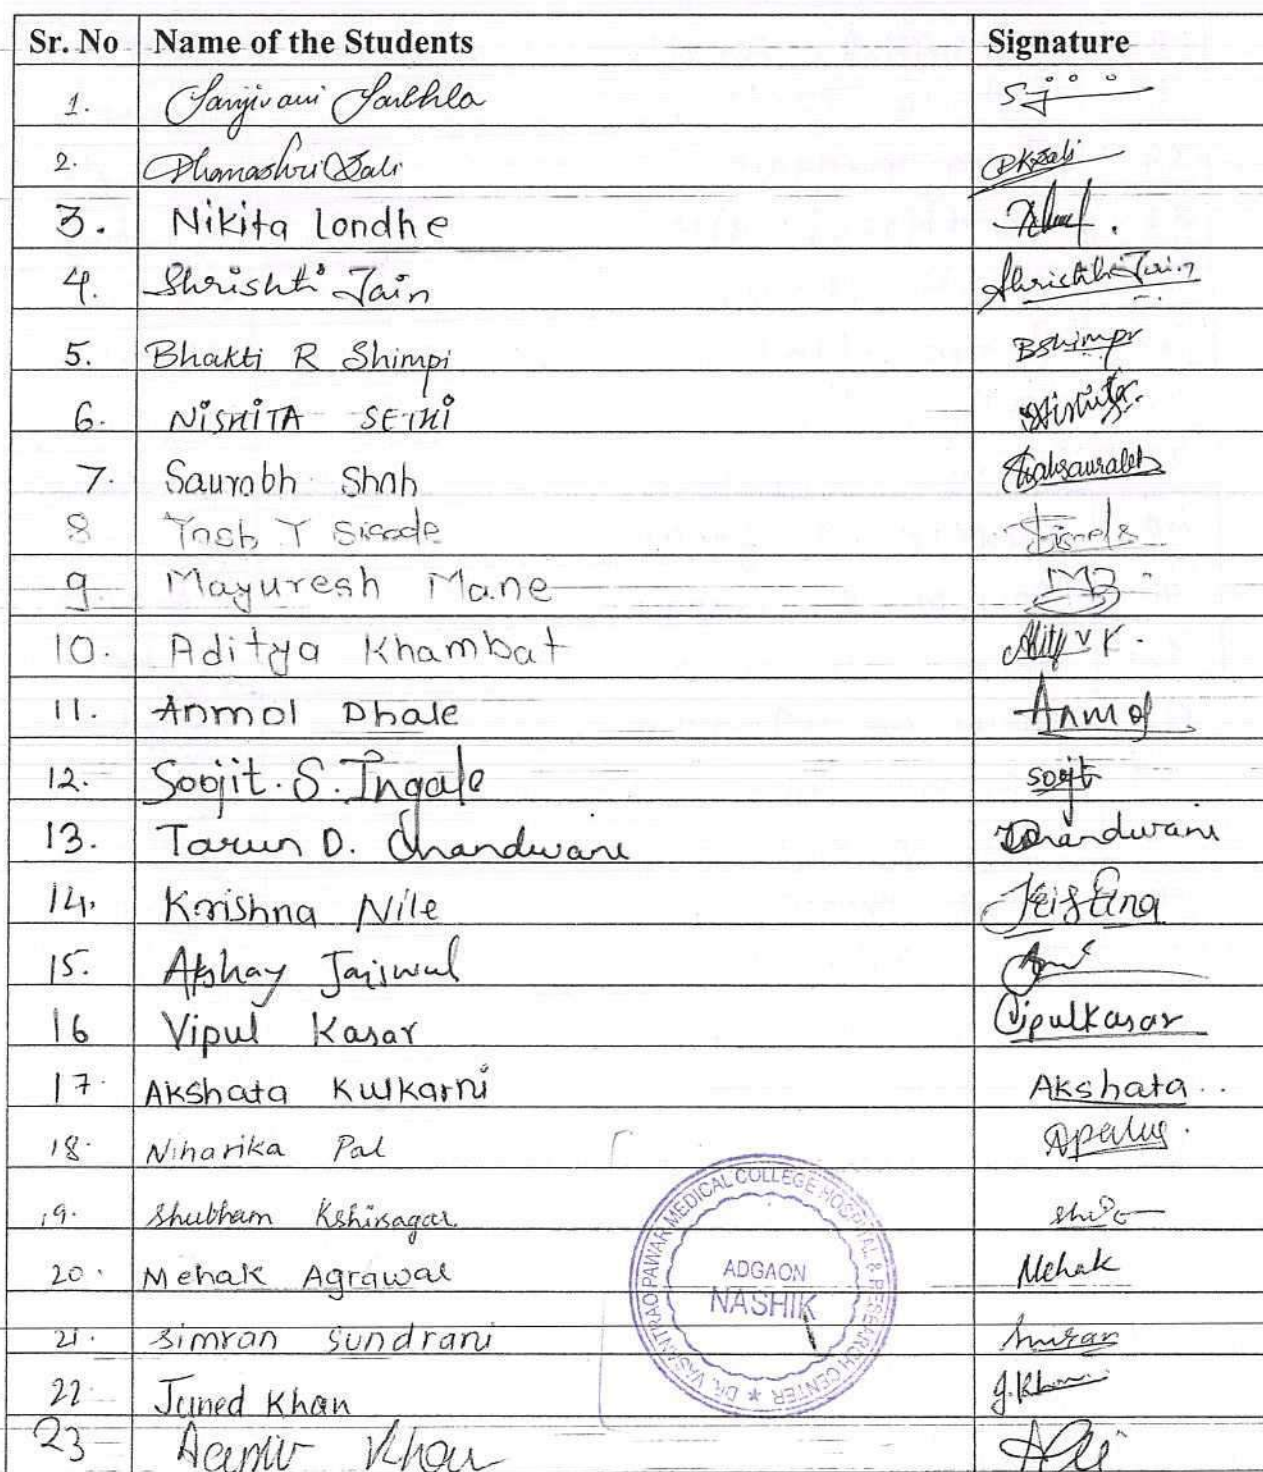 Sr. No Name of the Students Signature
1. Sanjivani
2. Dhanashri Sali DKSali
3. Nikita Londhe
4. Shrishti Jain Shrishti Jain
5. Bhakti R Shimpi BShimpi
6. NISHITA SETHI Nishita
7. Saurabh Shah Shahsaurabh
8 Yash Y Sirode
9. Mayuresh Mane
10. Aditya Khambat
11. Anmol Dhale Anmol
12. Soojit. S. Ingale soojit
13. Tarun D. Chandwani Chandwani
14. Krishna Nile Krishna
15. Akshay Jaiswal
16 Vipul Kasar Vipulkasar
17. Akshata Kulkarni Akshata
18. Niharika Pal
19. Shubham Kshirsagar
20. Mehak Agrawal Mehak
21. Simran Sundrani Simran
22 Juned Khan J.Khan
23 Khan
DR. VASANTRAO PAWAR MEDICAL COLLEGE HOSPITAL & RESEARCH CENTER ★
ADGAON
NASHIK